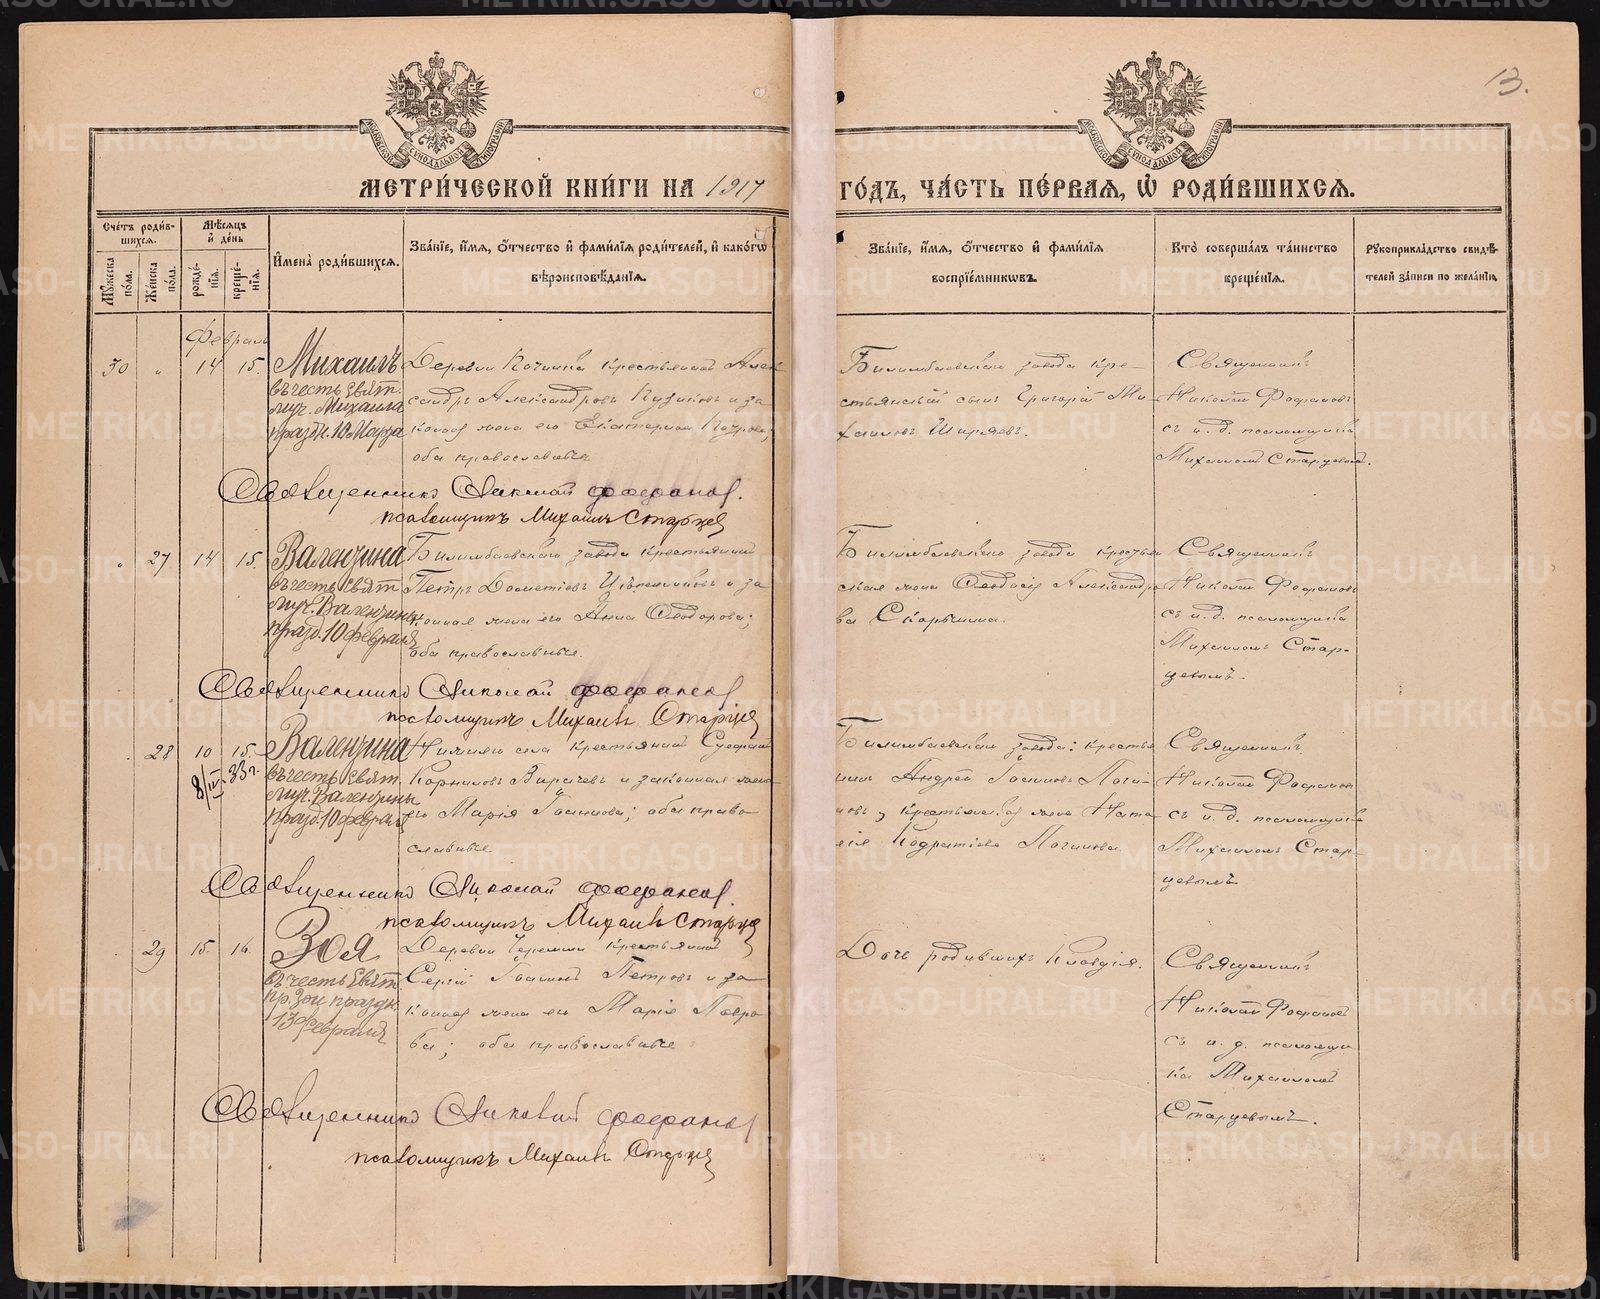 13.
МОСКОВСКОЙ СѴНОДАЛЬНОЙ ТИПОГРАФІИ
МОСКОВСКОЙ СѴНОДАЛЬНОЙ ТИПОГРАФІИ
МЕТРИ́ЧЕСКОЙ КНИ́ГИ НА 1917 ГО́ДЪ, ЧА́СТЬ ПЕ́РВАЯ, Ѡ҆ РОДИ́ВШИХСЯ.
Сче́тъ роди́вшихся.
Му́жеска по́ла.
Же́нска по́ла.
Мѣ́сяцъ и҆ де́нь
рожде́нія.
креще́нія.
И҆мена̀ роди́вшихся.
Зва́ніе, и҆́мя, ѻ҆́тчество и҆ фами́лія роди́телей, и҆ како́гѡ
вѣроисповѣ́данія.
Зва́ніе, и҆́мя, ѻ҆́тчество и҆ фами́лія
воспріе́мникѡвъ.
Кто̀ соверша́лъ та́инство
креще́нія.
Рукоприкла́дство свидѣ́телей за́писи по жела́нію.
Февраль
30 " 14 15.
Михаилъ
въ честь свят.
муч. Михаила
праздн. 10 Марта
Деревни Починка крестьянинъ Алек-
сандръ Александровъ Кузиковъ и за
конная жена его Екатерина Петрова;
оба православные
Билимбаевскаго завода кре-
стьянскій сынъ Григорій Ми-
хаиловъ Ширяевъ.
Священникъ
Николай Фофановъ
съ и. д. псаломщика
Михаиломъ Старцевымъ.
Священникъ Николай Фофановъ.
псаломщикъ Михаилъ Старцевъ
" 27 14 15.
Валентина
въ честь свят.
муч. Валентины
празд. 10 февраля
Билимбаевскаго завода крестьянинъ
Петръ Дометіевъ и за
конная жена его Анна Ѳеодорова;
оба православные.
Билимбаевскаго завода крестьян
ская жена Ѳеодосія Александро
ва Скорынина.
Священникъ
Николай Фофановъ
съ и. д. псаломщика
Михаиломъ Стар-
цевымъ.
Священникъ Николай Фофановъ
псаломщикъ Михаилъ Старцевъ
28 10 15.
8/IV 33 г.
Валентина
въ честь свят.
муч. Валентины
празд. 10 февраля
села крестьянинъ
Корниловъ и законная жена
его Марія Іоаннова; оба право
славные
Билимбаевскаго завода: крестья
нинъ Андрей Іоанновъ Логи-
новъ, и крестьянская жена Ната
лія Кодратіева Логинова
Священникъ
Николай Фофановъ
съ и. д. псаломщика
Михаиломъ Стар-
цевымъ
Священникъ Николай Фофановъ.
псаломщикъ Михаилъ Старцевъ
29 15. 16.
Зоя
въ честь свят.
пр. Зои праздн.
13 февраля
Деревни Черемши крестьянинъ
Сергій Іоанновъ Петровъ и за
конная жена его Марія Лавро
ва; оба православные
Дочь родившихъ Клавдія.
Священникъ
Николай Фофановъ
съ и. д. псаломщи
ка Михаиломъ
Старцевымъ.
Священникъ Николай Фофановъ
псаломщикъ Михаилъ Старцевъ
METRIKI.GASO-URAL.RU